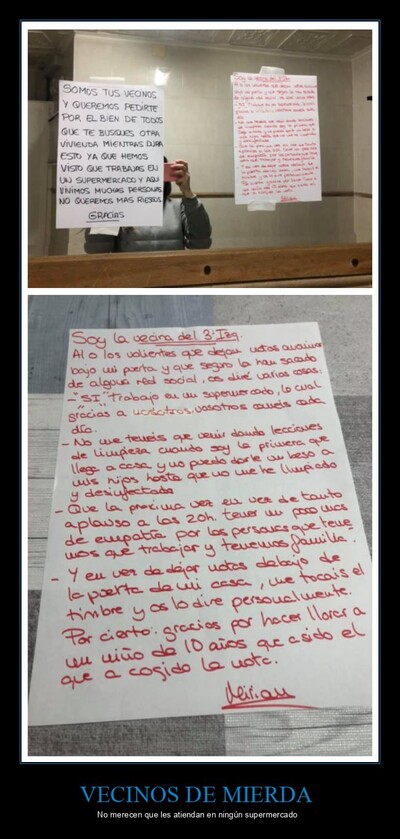 SOMOS TUS VECINOS
Y QUEREMOS PEDIRTE
POR EL BIEN DE TODOS
QUE TE BUSQUES OTRA
VIVIENDA MIENTRAS DURA
ESTO YA QUE HEMOS
VISTO QUE TRABAJAS EN
UN SUPERMERCADO Y AQUI
VIVIMOS MUCHAS PERSONAS
NO QUEREMOS MAS RIESGOS
GRACIAS
Soy la vecina del 3º Izq.
Al o los valientes que dejan notas anonimas
bajo mi puerta y que seguro la han sacado
de alguna red social, os diré varias cosas:
- "SI" Trabajo en un supermercado, lo cual
gracias a nosotros, vosotros comeis cada
día.
- No me teneis que venir dando lecciones
de limpieza cuando soy la primera que
llega a casa y no puedo darle un beso a
mis hijos hasta que no me he limpiado
y desinfectado
- Que la proxima vez en vez de tanto
aplauso a las 20h. tener un poco mas
de empatía por las personas que tene-
mos que trabajar y tenemos familia.
- Y en vez de dejar notas debajo de
la puerta de mi casa, me tocais el
timbre y os lo dire personalmente.
Por cierto: gracias por hacer llorar a
un niño de 10 años que a sido el
que a cogido la nota.
Mirian
VECINOS DE MIERDA
No merecen que les atiendan en ningún supermercado